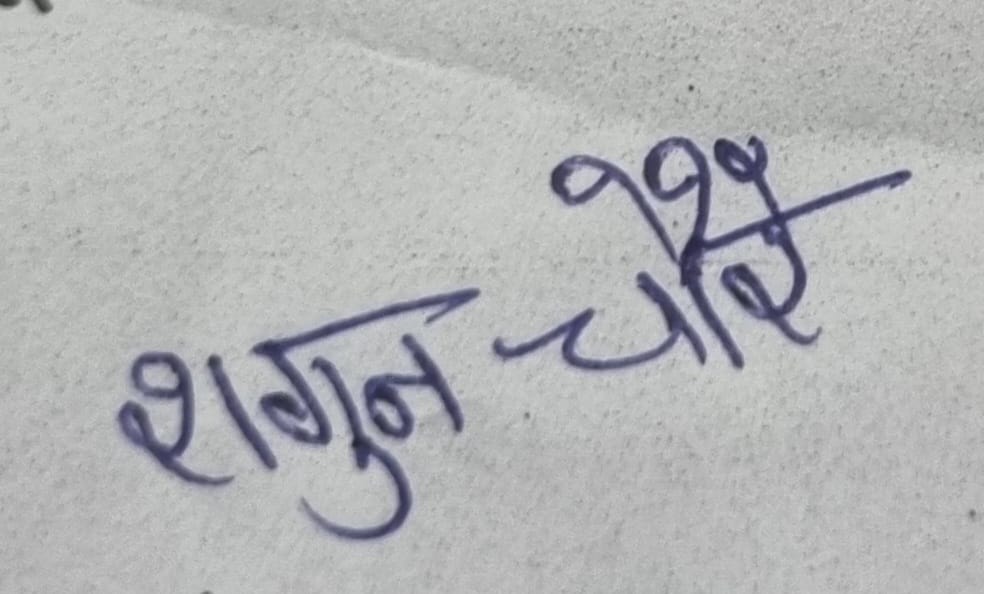 शगुन चौरे